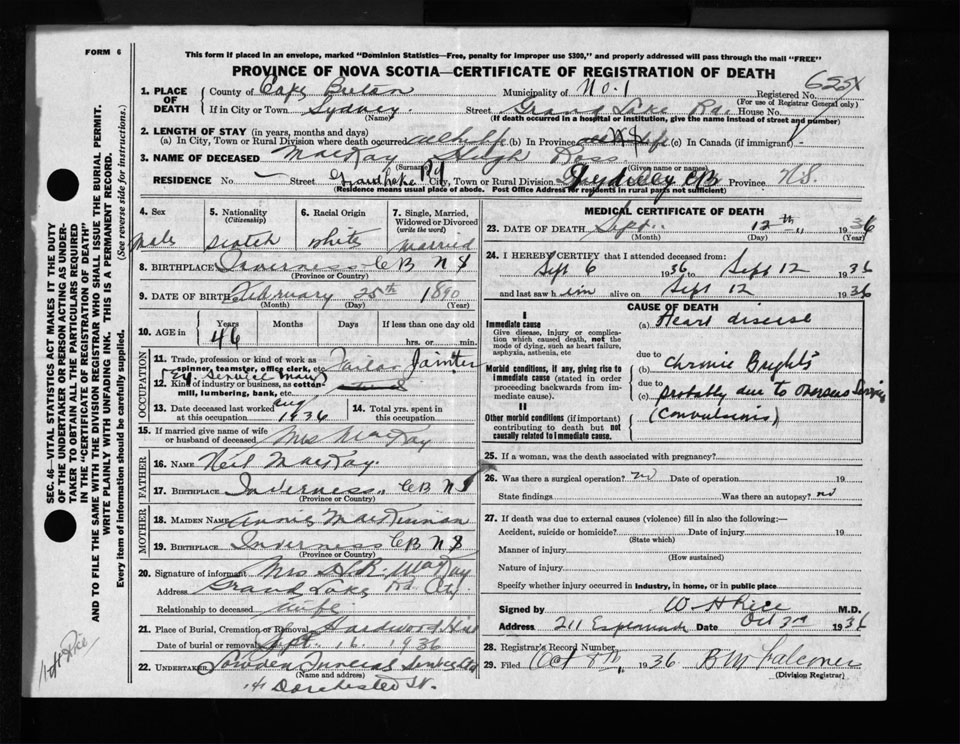 FORM 6
This form if placed in an envelope, marked "Dominion Statistics—Free, penalty for improper use $300," and properly addressed will pass through the mail "FREE"
PROVINCE OF NOVA SCOTIA—CERTIFICATE OF REGISTRATION OF DEATH
SEC. 46—VITAL STATISTICS ACT MAKES IT THE DUTY
OF THE UNDERTAKER OR PERSON ACTING AS UNDER-
TAKER TO OBTAIN ALL THE PARTICULARS REQUIRED
IN THE "CERTIFICATE OF REGISTRATION OF DEATH"
AND TO FILE THE SAME WITH THE DIVISION REGISTRAR WHO SHALL ISSUE THE BURIAL PERMIT.
WRITE PLAINLY WITH UNFADING INK. THIS IS A PERMANENT RECORD.
Every item of information should be carefully supplied. (See reverse side for instructions.)
1. PLACE OF DEATH
County of Cape Breton Municipality of No. 1 Registered No.
(For use of Registrar General only)
If in City or Town Sydney Street Grand Lake Rd. House No.
(Name) (If death occurred in a hospital or institution, give the name instead of street and number)
2. LENGTH OF STAY (in years, months and days)
(a) In City, Town or Rural Division where death occurred all life (b) In Province all life (c) In Canada (if immigrant)
3. NAME OF DECEASED MacKay Hugh Ross
(Surname) (Given name or names)
RESIDENCE No. Street Grand Lake Rd City, Town or Rural Division Sydney CB Province N.S.
(Residence means usual place of abode. Post Office Address for residents in rural parts not sufficient)
4. Sex
Male
5. Nationality
(Citizenship)
Scotch
6. Racial Origin
White
7. Single, Married,
Widowed or Divorced
(write the word)
Married
8. BIRTHPLACE Inverness CB NS
(Province or Country)
9. DATE OF BIRTH February 25th 1890
(Month) (Day) (Year)
10. AGE in Years Months Days If less than one day old
46 hrs. or min.
OCCUPATION
11. Trade, profession or kind of work as
spinner, teamster, office clerk, etc.
Ex. Service Man
12. Kind of industry or business, as cotton-
mill, lumbering, bank, etc.
13. Date deceased last worked
at this occupation Aug 1936
14. Total yrs. spent in
this occupation
15. If married give name of wife
or husband of deceased Mrs MacKay
FATHER
16. NAME Neil MacKay
17. BIRTHPLACE Inverness CB NS
(Province or Country)
MOTHER
18. MAIDEN NAME Annie MacKinnon
19. BIRTHPLACE Inverness CB NS
(Province or Country)
20. Signature of informant Mrs H.R. MacKay
Address Grand Lake Rd
Relationship to deceased Wife
21. Place of Burial, Cremation or Removal Hardwood Hill
Date of burial or removal Sept. 16 1936
22. UNDERTAKER Funeral
(Name and address)
141 Dorchester St.
MEDICAL CERTIFICATE OF DEATH
23. DATE OF DEATH Sept. 12th 1936
(Month) (Day) (Year)
24. I HEREBY CERTIFY that I attended deceased from:
Sept 6 1936 to Sept 12 1936
and last saw him alive on Sept 12 1936
CAUSE OF DEATH
I
Immediate cause
Give disease, injury or complica-
tion which caused death, not the
mode of dying, such as heart failure,
asphyxia, asthenia, etc
(a) Heart disease
due to
Morbid conditions, if any, giving rise to
immediate cause (stated in order
proceeding backwards from im-
mediate cause).
(b) Chronic Brights
due to
(c) probably due to overseas Service
II
Other morbid conditions (if important)
contributing to death but not
causally related to immediate cause.
(Convulsions)
25. If a woman, was the death associated with pregnancy?
26. Was there a surgical operation? no Date of operation 19
State findings Was there an autopsy? no
27. If death was due to external causes (violence) fill in also the following:—
Accident, suicide or homicide? Date of injury 19
(State which)
Manner of injury
(How sustained)
Nature of injury
Specify whether injury occurred in industry, in home, or in public place
Signed by W H Rice M.D.
Address 211 Esplanade Date Oct 3rd 1936
28. Registrar's Record Number
29. Filed Oct 1936 B W Falconer
(Division Registrar)